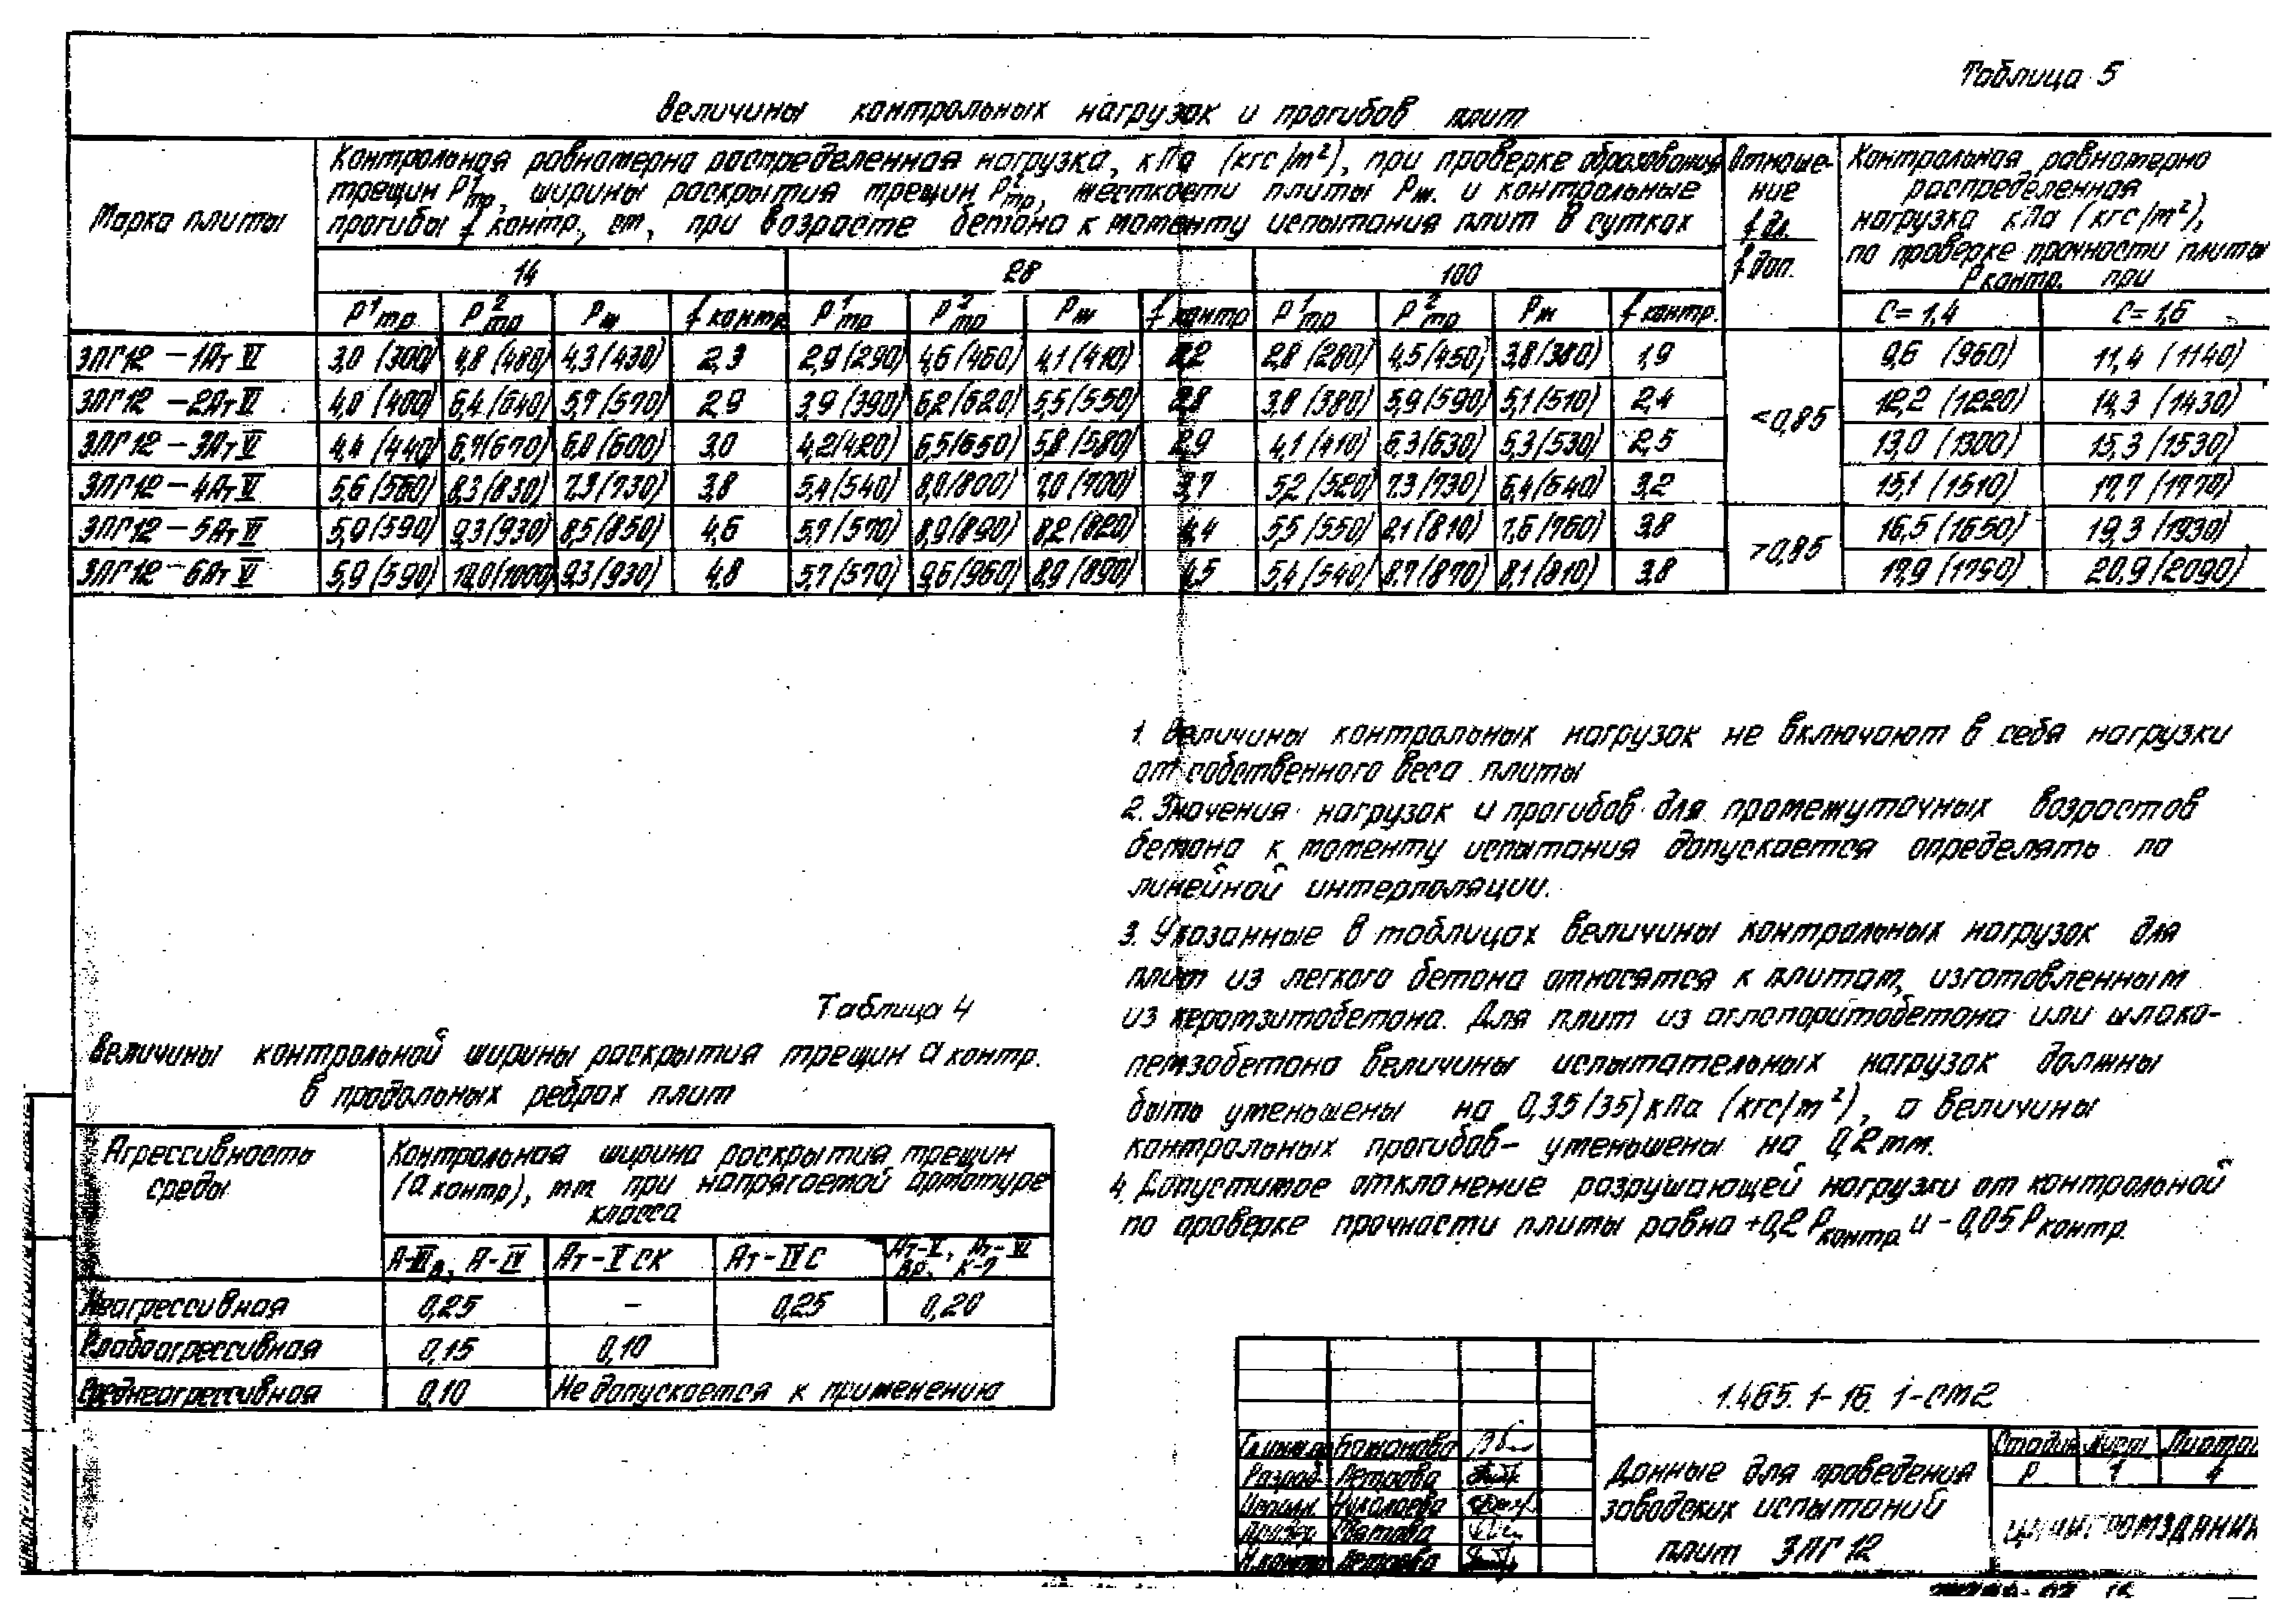 Таблица 5
Величины контрольных нагрузок и прогибов плит
Марка плиты
Контрольная равномерно распределенная нагрузка, кПа (кгс/м²), при проверке образования
трещин P¹тр, ширины раскрытия трещин P²тр, жесткости плиты Pж. и контрольные
прогибы f контр., см, при возрасте бетона к моменту испытания плит в сутках
Отноше-
ние
f дл.
f доп.
Контрольная равномерно
распределенная
нагрузка кПа (кгс/м²),
по проверке прочности плиты
Pконтр. при
14 28 100
P¹тр P²тр Pж f контр P¹тр P²тр Pж f контр P¹тр P²тр Pж f контр. C=1,4 C=1,6
3ПГ12-1АтVI 3,0(300) 4,8(480) 4,3(430) 2,3 2,9(290) 4,6(460) 4,1(410) 2,2 2,8(280) 4,5(450) 3,8(380) 1,9 9,6 (960) 11,4 (1140)
3ПГ12-2АтVI 4,0(400) 6,4(640) 5,7(570) 2,9 3,9(390) 6,2(620) 5,5(550) 2,8 3,8(380) 5,9(590) 5,1(510) 2,4 <0,85 12,2 (1220) 14,3 (1430)
3ПГ12-3АтVI 4,4(440) 6,7(670) 6,0(600) 3,0 4,2(420) 6,5(650) 5,8(580) 2,9 4,1(410) 6,3(630) 5,3(530) 2,5 13,0 (1300) 15,3 (1530)
3ПГ12-4АтVI 5,6(560) 8,3(830) 7,3(730) 3,8 5,4(540) 8,0(800) 7,0(700) 3,7 5,2(520) 7,3(730) 6,4(640) 3,2 15,1 (1510) 17,7 (1770)
3ПГ12-5АтVI 5,9(590) 9,3(930) 8,5(850) 4,6 5,7(570) 8,9(890) 8,2(820) 4,4 5,5(550) 8,1(810) 7,6(760) 3,8 >0,85 16,5 (1650) 19,3 (1930)
3ПГ12-6АтVI 5,9(590) 10,0(1000) 9,3(930) 4,8 5,7(570) 9,6(960) 8,9(890) 4,5 5,4(540) 8,7(870) 8,1(810) 3,8 20,9 (2090)
1. Величины контрольных нагрузок не включают в себя нагрузки
от собственного веса плиты
2. Значения нагрузок и прогибов для промежуточных возрастов
бетона к моменту испытания допускается определять по
линейной интерполяции.
3. Указанные в таблицах величины контрольных нагрузок для
плит из легкого бетона относятся к плитам, изготовленным
из керамзитобетона. Для плит из аглопоритобетона или шлако-
пемзобетона величины испытательных нагрузок должны
быть уменьшены на 0,35(35)кПа (кгс/м²), а величины
контрольных прогибов- уменьшены на 0,2 мм.
4. Допустимое отклонение разрушающей нагрузки от контрольной
по проверке прочности плиты равна +0,2 Pконтр и -0,05 Pконтр.
Таблица 4
Величины контрольной ширины раскрытия трещин a контр.
в продольных ребрах плит
Агрессивность
среды
Контрольная ширина раскрытия трещин
(a контр), мм при напрягаемой арматуре
класса
А-IIIв, А-IV Ат-V СК Ат-IVС Ат-V, Ат-VI
Вр, К-7
Неагрессивная 0,25 - 0,25 0,20
Слабоагрессивная 0,15 0,10
Среднеагрессивная 0,10 Не допускается к применению
1.465.1-16. 1-СМ2
Бажанова
Разраб. Петрова
Николаева
Провер.
Н.контр Петрова
Данные для проведения
заводских испытаний
плит 3ПГ12
Стадия Лист Листов
Р 1 4
ЦНИИПРОМЗДАНИЙ